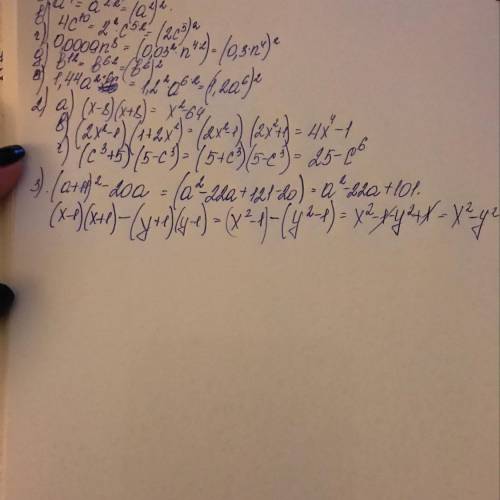 б) a⁴ = a²·² = (a²)².
4c¹⁰ = 2²·c⁵·² = (2c⁵)²
0,0009n⁸ = (0,03²·n⁴·²) = (0,3·n⁴)²
b¹² = b⁶·² = (b⁶)²
1,44a² = 1,2²·a⁶·² = (1,2a⁶)²
2) a) (x-8)(x+8) = x²-64
в) (2x²-1)(1+2x²) = (2x²-1)(2x²+1) = 4x⁴-1
г) (c³+5)·(5-c³) = (5+c³)(5-c³) = 25-c⁶
3). (a+11)²-20a = (a²-22a+121-20) = a²-22a+101.
(x-1)(x+1)-(y+1)(y-1) = (x²-1)-(y²-1) = x²-1-y²+1 = x²-y²